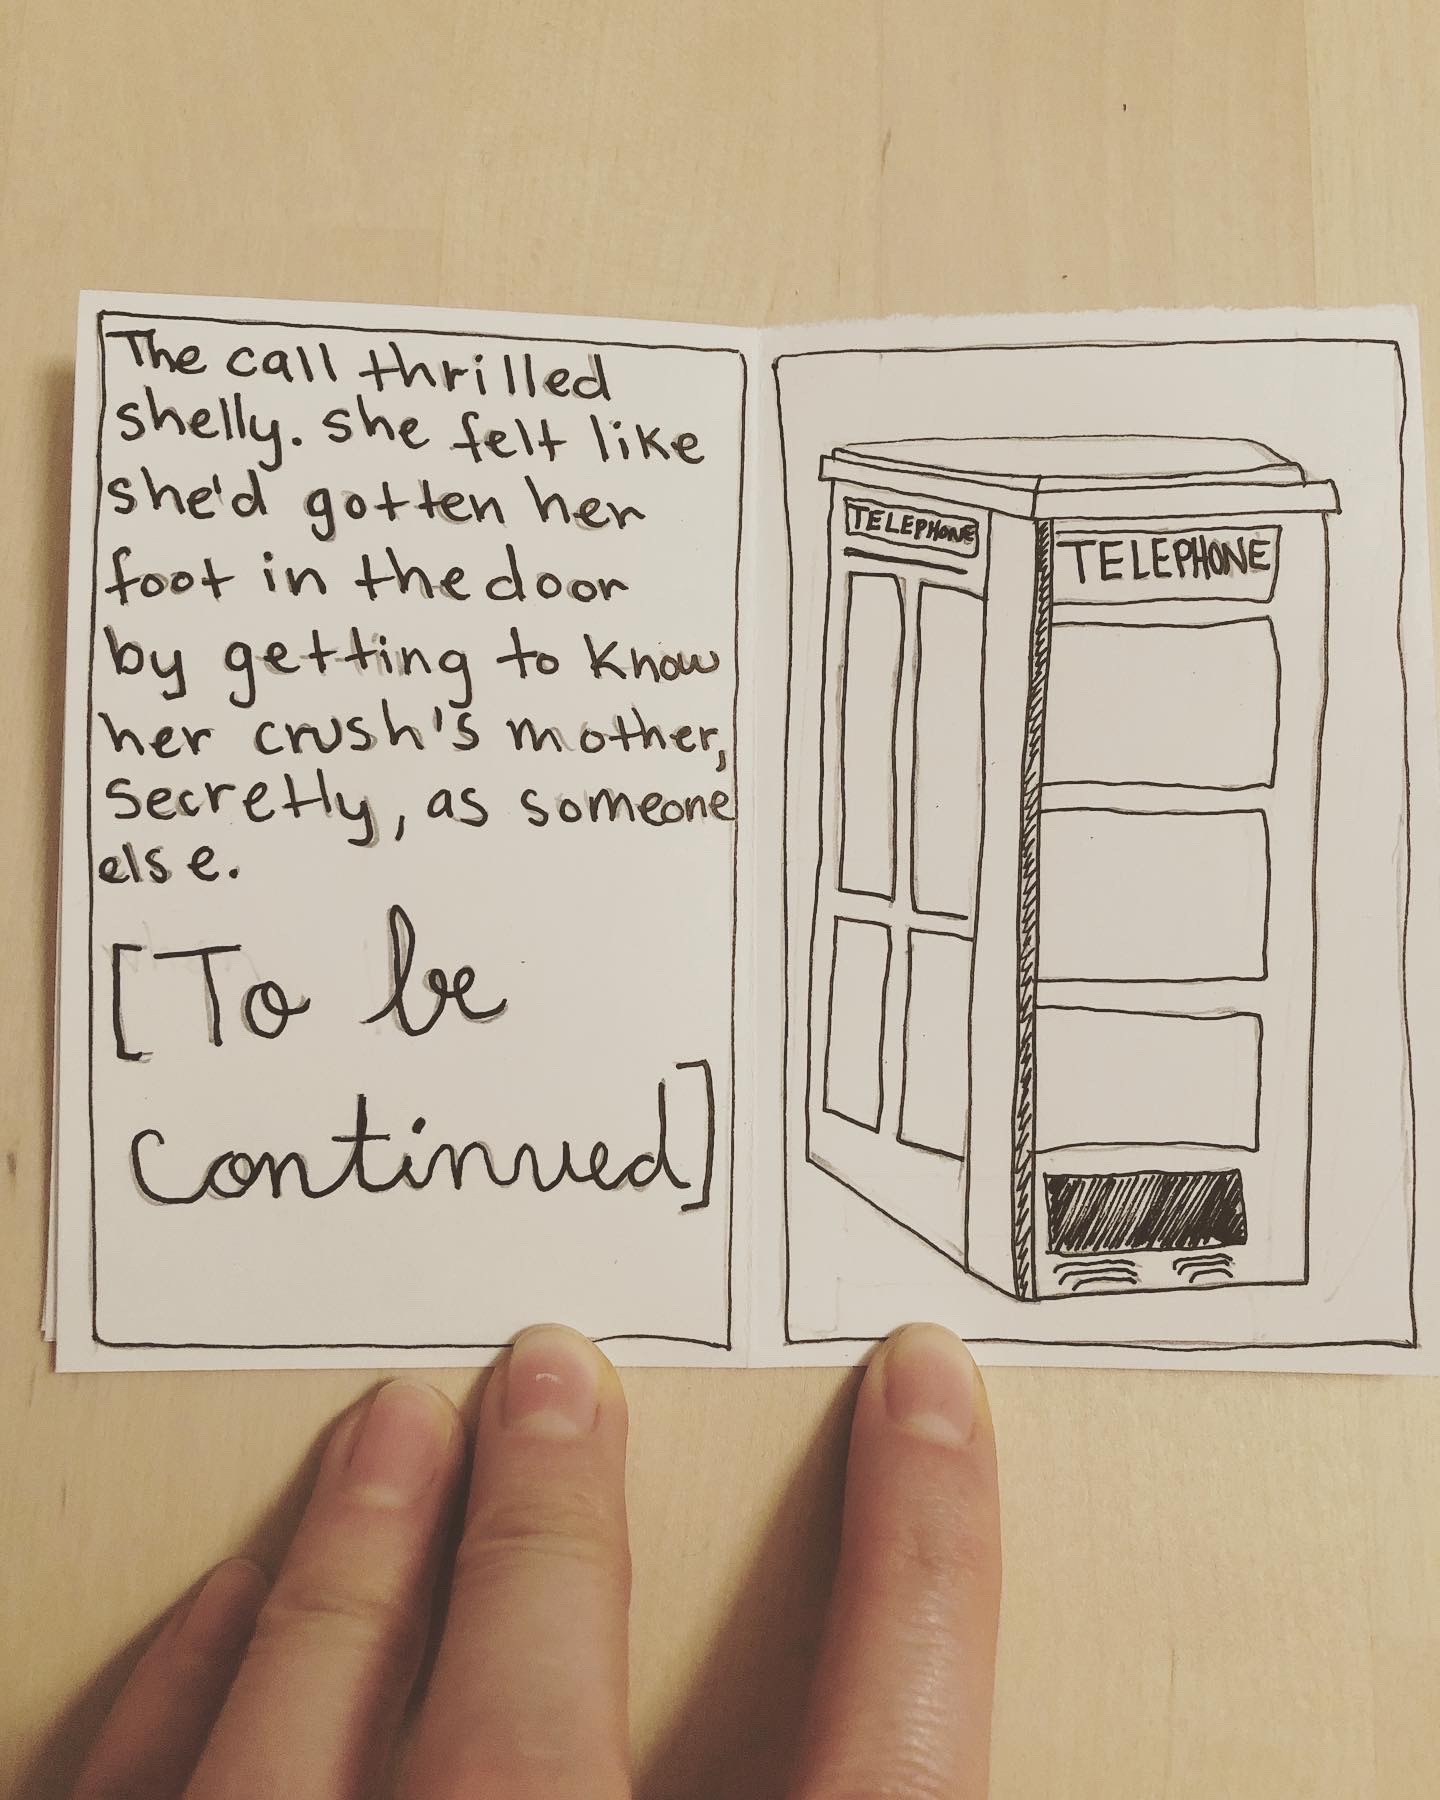 The call thrilled
shelly. she felt like
she'd gotten her
foot in the door
by getting to know
her crush's mother,
secretly, as someone
else.
[To be
continued]
TELEPHONE
TELEPHONE